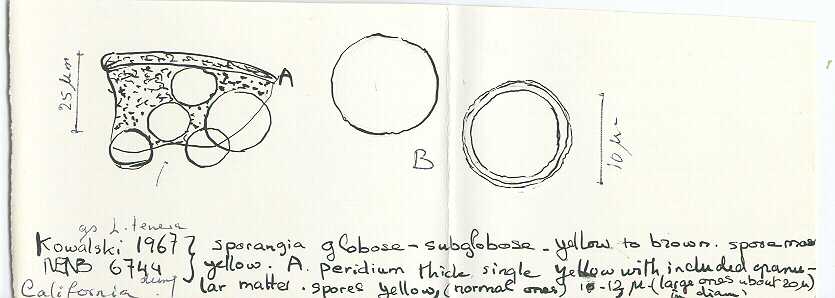 25 μm
A
B
10 μ
as L. tenera
Kowalski 1967 } sporangia globose - subglobose - yellow to brown. spore mass
NENB 6744 } yellow. A. peridium thick single yellow with included granu-
California dung lar matter. spores yellow, (normal ones) 10-12 μ (large ones about 20 μ)
in diam.